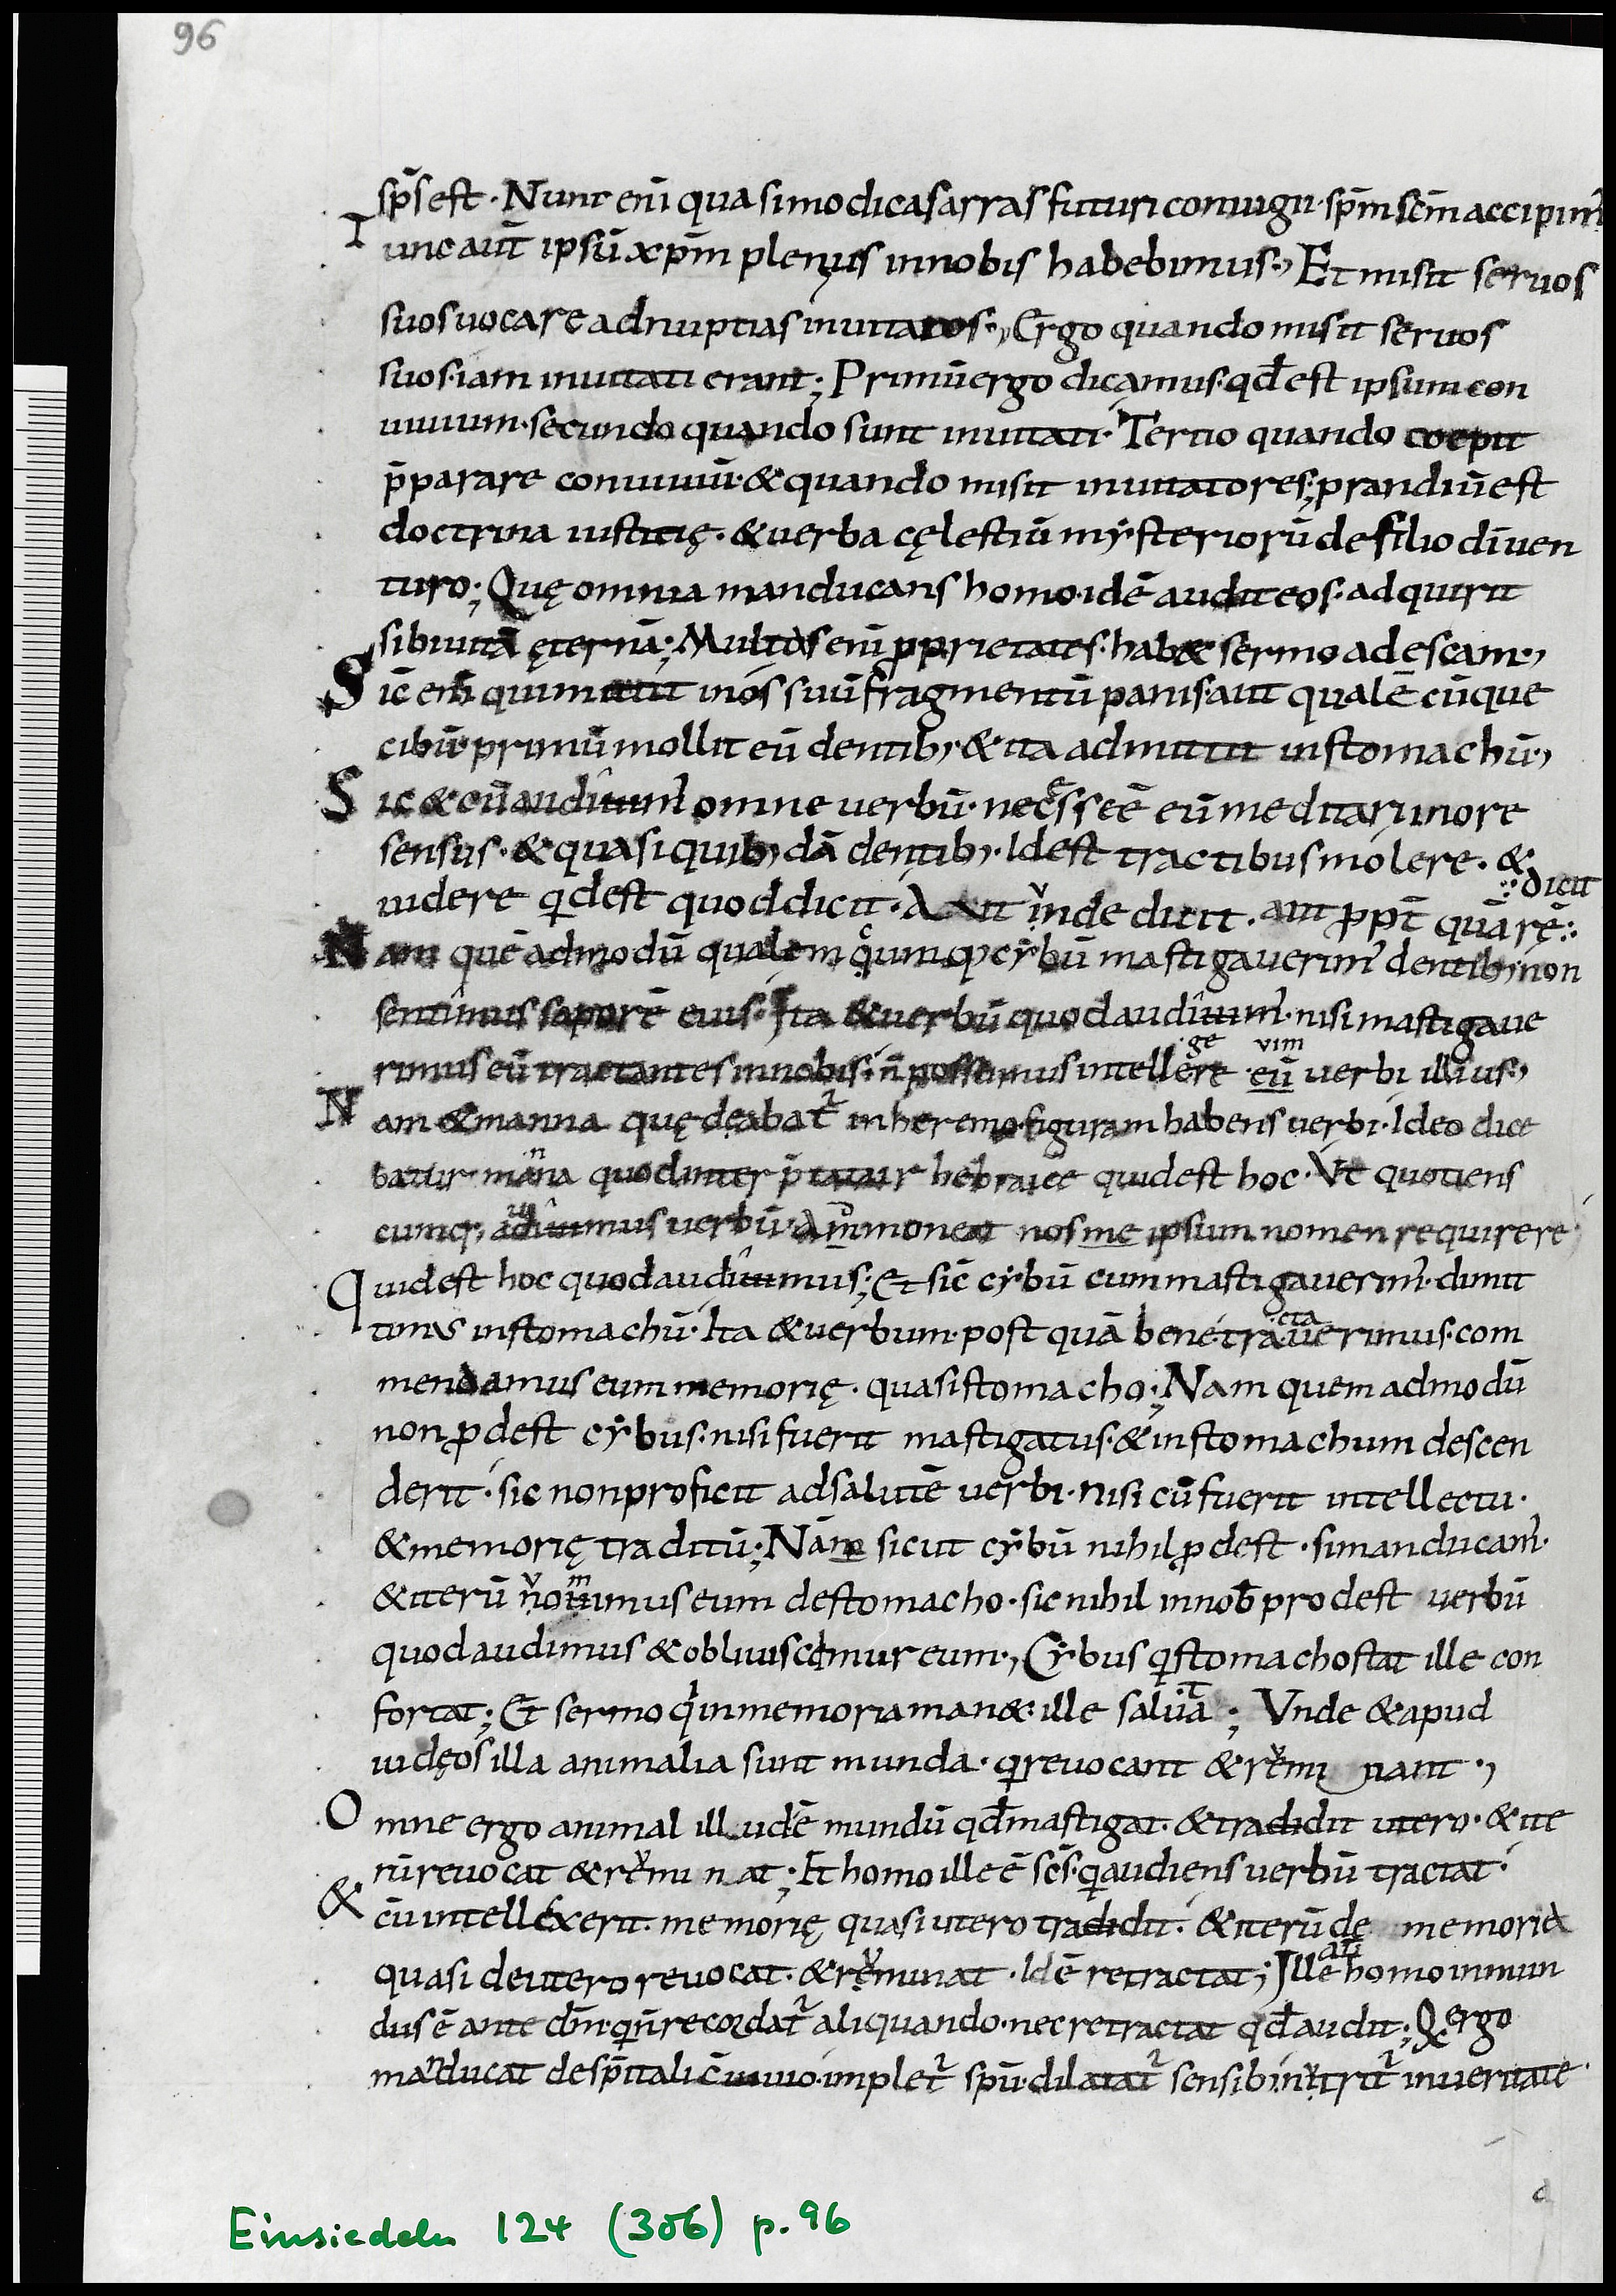 96
sp̄s est · Nunc eni̅ quasi modicas arras futuri coniugii · sp̄m sc̄m accipim'
Tunc aut̄ ipsū xp̄m plenius in nobis habebimus ·, Et misit seruos
suos uocare ad nuptias inuitatos ·, Ergo quando misit seruos
suos · iam inuitati erant ; Primū ergo dicamus · qd̄ est ipsum con
uiuium · secundo quando sunt inuitati · Tertio quando coepit
p̄parare conuiuiū · & quando misit inuitatores ; prandiū est
doctrina iusticię · & uerba cęlestiū mẏsteriorū de filio dī uen
turo ; Quę omnia manducans homo · idē audit eos · adquirit
sibi uitā ęternā ; Multas eni̅ ꝓprietates · hab& sermo ad escam ·,
Sic̄ eni̅ qui mittit in os suū fragmentū panis · aut qualē cūque
cibū · primū mollit eū dentib; & ita admittit in stomachū ·,
Sic & cū audîuim' omne uerbū · necęss eē eū meditari in ore
sensus · & quasi quib; dā dentib; · Id est tractibus molere · &
uidere qid est quod dicit · Aut vnde dicit · aut ꝓpt̄ quā rē ·:· dicit
Nam quē admodū qualem cumq; cẏbū mastigauerim' dentib; non
sentîmus saporē eius · Ita & uerbū quod audîuim' · nisi mastigaue
rimus eū tractantes in nobis · n̄ possumus intellegere eū vim uerbi illius ·,
Nam & manna quę deabat᷑ in heremo · figuram habens uerbi · Ideo dice
batur · manna quod interp̄tatur hebraice quid est hoc · Vt quotiens
cumq; audîuimus uerbū · Ammoneat nos me ipsum nomen requirere
Quid est hoc quod audîuimus ; Et sic̄ cẏbū cum mastigauerim' · dimit
timus in stomachū · Ita & uerbum · post quā bene tractauerimus · com
mendamus eum memorię · quasi stomacho ; Nam quem admodū
non ꝓdest cẏbus · nisi fuerit mastigatus · & in stomachum descen
derit · sic non proficit ad salutē uerbi · nisi cū fuerit intellectu ·
& memorię traditū ; Nam sicut cẏbū nihil ꝓdest · si manducam' ·
& iterū vomimus eum de stomacho · sic nihil in nob̄ prodest uerbū
quod audimus & obliuiscimur eum ·, Cẏbus qi stomacho stat ille con
fortat ; Et sermo qi in memoria man& · ille saluat ; Vnde & apud
iudęos illa animalia sunt munda · qi reuocant & rvminant ·,
Omne ergo animal illud ē mundū qd̄ mastigat · & tradidit utero · & ite
rū reuocat & rvminat ; Et homo ille ē sc̄s · qi audiens uerbū tractat ·
& cū intellexerit · memorię quasi utero tradidit · & iterū de memoria
quasi de utero reuocat · & rvminat · Idē retractat ; Ille aut̄ homo inmun
dus ē ante dn̄m · qi n̄ recordat᷑ aliquando · nec retractat qd̄ audit ; Q ergo
manducat de sp̄itali c̄uiuio · implet᷑ spū · dilatat᷑ sensib; nvtrit᷑ in ueritate ·
Einsiedeln 124 (306) p. 96